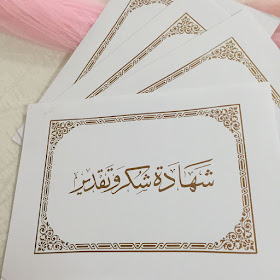 شَهَادَة شُكر وَتقدير